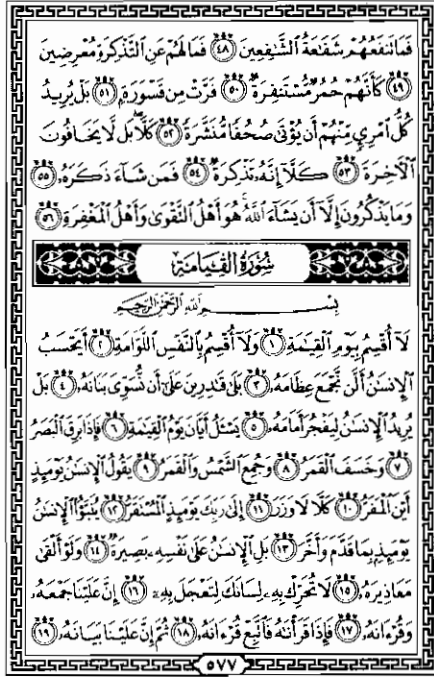 فَمَا تَنفَعُهُمْ شَفَاعَةُ الشَّافِعِينَ ٤٨ فَمَا لَهُمْ عَنِ التَّذْكِرَةِ مُعْرِضِينَ
٤٩ كَأَنَّهُمْ حُمُرٌ مُّسْتَنفِرَةٌ ٥٠ فَرَّتْ مِن قَسْوَرَةٍ ٥١ بَلْ يُرِيدُ
كُلُّ امْرِئٍ مِّنْهُمْ أَن يُؤْتَى صُحُفًا مُّنَشَّرَةً ٥٢ كَلَّا بَل لَّا يَخَافُونَ
الْآخِرَةَ ٥٣ كَلَّا إِنَّهُ تَذْكِرَةٌ ٥٤ فَمَن شَاءَ ذَكَرَهُ ٥٥
وَمَا يَذْكُرُونَ إِلَّا أَن يَشَاءَ اللَّهُ هُوَ أَهْلُ التَّقْوَى وَأَهْلُ الْمَغْفِرَةِ ٥٦
سُورَةُ الْقِيَامَةِ
بِسْمِ اللَّهِ الرَّحْمَٰنِ الرَّحِيمِ
لَا أُقْسِمُ بِيَوْمِ الْقِيَٰمَةِ ١ وَلَا أُقْسِمُ بِالنَّفْسِ اللَّوَّامَةِ ٢ أَيَحْسَبُ
الْإِنسَٰنُ أَلَّن نَّجْمَعَ عِظَامَهُ ٣ بَلَى قَٰدِرِينَ عَلَى أَن نُّسَوِّيَ بَنَانَهُ ٤ بَلْ
يُرِيدُ الْإِنسَٰنُ لِيَفْجُرَ أَمَامَهُ ٥ يَسْـَٔلُ أَيَّانَ يَوْمُ الْقِيَٰمَةِ ٦ فَإِذَا بَرِقَ الْبَصَرُ
٧ وَخَسَفَ الْقَمَرُ ٨ وَجُمِعَ الشَّمْسُ وَالْقَمَرُ ٩ يَقُولُ الْإِنسَٰنُ يَوْمَئِذٍ
أَيْنَ الْمَفَرُّ ١٠ كَلَّا لَا وَزَرَ ١١ إِلَى رَبِّكَ يَوْمَئِذٍ الْمُسْتَقَرُّ ١٢ يُنَبَّؤُا الْإِنسَٰنُ
يَوْمَئِذٍ بِمَا قَدَّمَ وَأَخَّرَ ١٣ بَلِ الْإِنسَٰنُ عَلَى نَفْسِهِ بَصِيرَةٌ ١٤ وَلَوْ أَلْقَى
مَعَاذِيرَهُ ١٥ لَا تُحَرِّكْ بِهِ لِسَانَكَ لِتَعْجَلَ بِهِ ١٦ إِنَّ عَلَيْنَا جَمْعَهُ
وَقُرْءَانَهُ ١٧ فَإِذَا قَرَأْنَٰهُ فَاتَّبِعْ قُرْءَانَهُ ١٨ ثُمَّ إِنَّ عَلَيْنَا بَيَانَهُ ١٩
٥٧٧